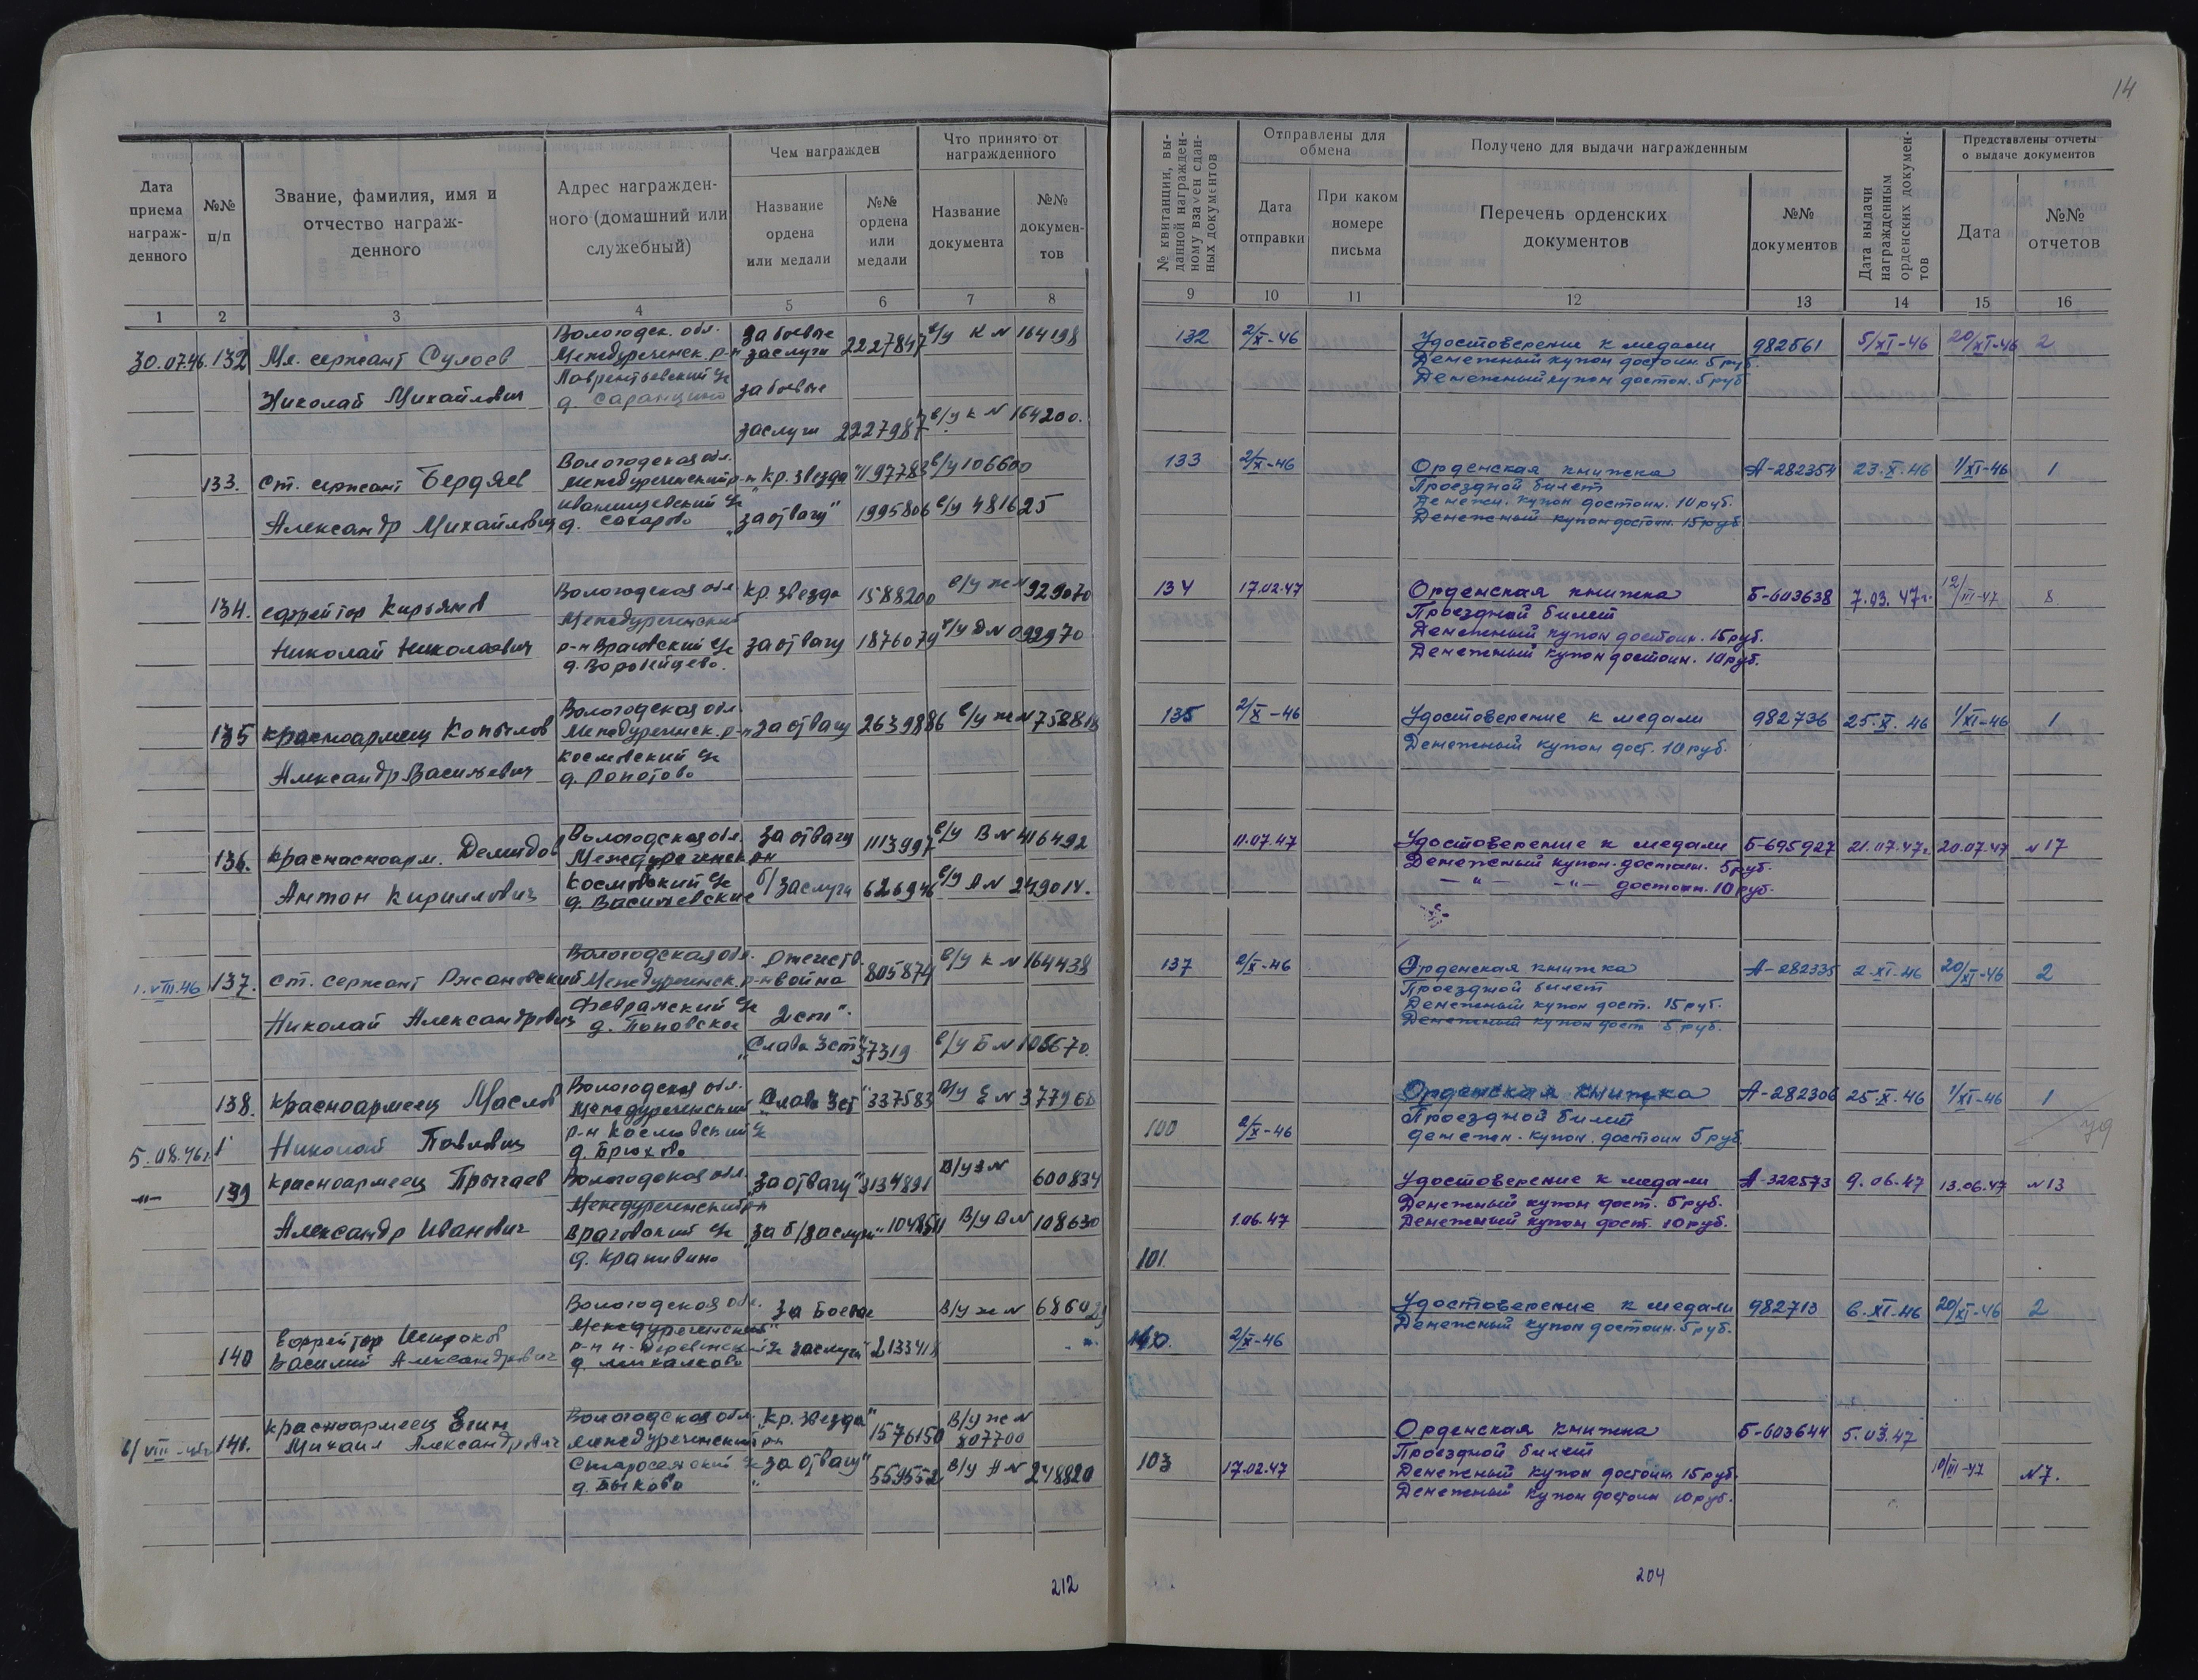 14
Дата приема награж-денного
№№ п/п
Звание, фамилия, имя и отчество награж-денного
Адрес награжден-ного (домашний или служебный)
Чем награжден
Название ордена или медали
№№ ордена или медали
Что принято от награжденного
Название документа
№№ докумен-тов
1 2 3 4 5 6 7 8
30.07.46. 132 Мл. сержант Сулоев Вологодск. обл. Междуреченск. р-н За боевые заслуги 2227847 в/у К N 164198
Николай Михайлович Лаврентьевский д. Саранцино за боевые
заслуги 2227987 в/у К N 164200.
133. Ст. сержант Бердяев Вологодская обл. Междуреченский р-н Кр. звезда 1197783 в/у 106600
Александр Михайлович д. Сахарово "за отвагу" 1995806 в/у 481625
134. ефрейтор Кирьянов Вологодская обл. Кр. звезда 1588200 в/у Ж N 929070
Николай Николаевич Междуреченский р-н Враговский д. Воробейцево. за отвагу 1876079 в/у Д N 099970
135 красноармеец Копылов Вологодская обл. Междуреченск. р-н за отвагу 2639886 в/у Ж N 758818
Александр Васильевич Космовский д. Лопотово
136. Краснасноарм. Демидов Вологодская обл. Междуреченск р-н за отвагу 1113997 в/у В N 416492
Антон Кириллович д. Васильевские б/заслуги 626946 в/у А N 249014.
1.VIII.46 137. Ст. сержант Ржановский Вологодская обл. Междуреченск. р-н Отечеств. война 805874 в/у К N 164438
Николай Александрович Февральский д. Поповское 2 ст".
"Слава 3 ст" 37319 в/у Б N 106670.
138. Красноармеец Маслов Вологодская обл. Междуреченский "Слава 3 ст" 337583 в/у Е N 377968
5.08.46г. Николай Павлович р-н д. Брюхово
-"- 139 Красноармеец Прыгаев Вологодская обл. Междуреченский р-н "За отвагу" 3134891 в/у З N 600834
Александр Иванович Враговский д. Крапивино "за б/заслуги" в/у В N 108630
140 Ефрейтор Широков Василий Александрович Вологодская обл. Междуреченский р-н д. Михалково За Боевые заслуги 2133418 в/у Ж N
6/VIII-46г 141. красноармеец Егин Михаил Александрович Вологодская обл. Междуреченский р-н "Кр. звезда" 1576150 в/у Ж N 807700
д. Быково "за отвагу" 559552 в/у А N 248820
212
№ квитанции, вы-данной награжден-ному взамен сдан-ных документов
Отправлены для обмена
Дата отправки
При каком номере письма
Получено для выдачи награжденным
Перечень орденских документов
№№ документов
Дата выдачи награжденным орденских докумен-тов
Представлены отчеты о выдаче документов
Дата
№№ отчетов
9 10 11 12 13 14 15 16
132 2/X-46 Удостоверение к медали 982561 5/XI-46 20/XI-46 2
Денежный купон достоин. 5 руб.
Денежный купон достоин. 5 руб
133 2/X-46 Орденская книжка А-282354 23.X.46 1/XI-46 1
Проездной билет
Денежн. купон достоин. 10 руб.
Денежный купон достоин. 15 руб.
134 17.02.47 Орденская книжка Б-603638 7.03.47г. 12/III-47 8
Проездной билет
Денежный купон достоин. 15 руб.
Денежный купон достоин. 10 руб.
135 2/X-46 Удостоверение к медали 982736 25.X.46 1/XI-46 1
Денежный купон дост. 10 руб.
11.07.47 Удостоверение к медали Б-695927 21.07.47г. 20.07.47 N 17
Денежный купон достоин. 5 руб.
-"- -"- достоин. 10 руб.
137 2/X-46 Орденская книжка А-282335 2.XI.46 20/XI-46 2
Проездной билет
Денежный купон дост. 15 руб.
Денежный купон дост 5 руб.
Орденская книжка А-282306 25.X.46 1/XI-46 1
100 2/X-46 Проездной билет
денежн. купон. достоин 5 руб.
Удостоверение к медали А-322573 9.06.47 13.06.47 N 13
Денежный купон дост. 5 руб.
1.06.47 Денежный купон дост. 10 руб.
101.
Удостоверение к медали 982713 6.XI.46 20/XI-46 2
Денежный купон достоин. 5 руб.
2/X-46
Орденская книжка Б-603644 5.03.47
Проездной билет
103 17.02.47 Денежный купон достоин 15 руб. 10/III-47 N 7.
Денежный купон достоин 10 руб.
204